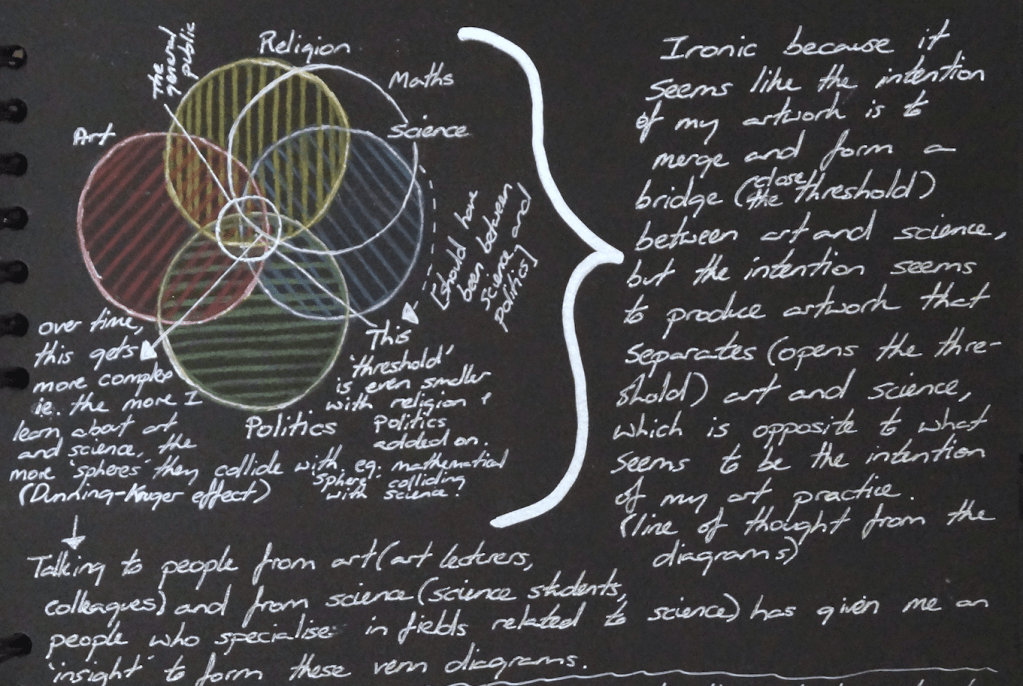 The
general
public
Religion
Maths
Art
Science
[should have
been between
science and
politics]
over time,
this gets
more complex
ie. the more I
learn about art
and science, the
more 'spheres' they collide with eg. mathematical
'sphere' colliding
with science.
(Dunning-Kruger effect)
This
'threshold'
is even smaller
with religion +
politics
added on.
Politics
Ironic because it
seems like the intention
of my artwork is to
merge and form a
bridge (close the threshold)
between art and science,
but the intention seems
to produce artwork that
separates (opens the thre-
shold) art and science,
which is opposite to what
seems to be the intention
of my art practice.
(line of thought from the
diagrams)
Talking to people from art (art lecturers,
colleagues) and from science (science students,
people who specialise in fields related to science) has given me an
'insight' to form these venn diagrams.